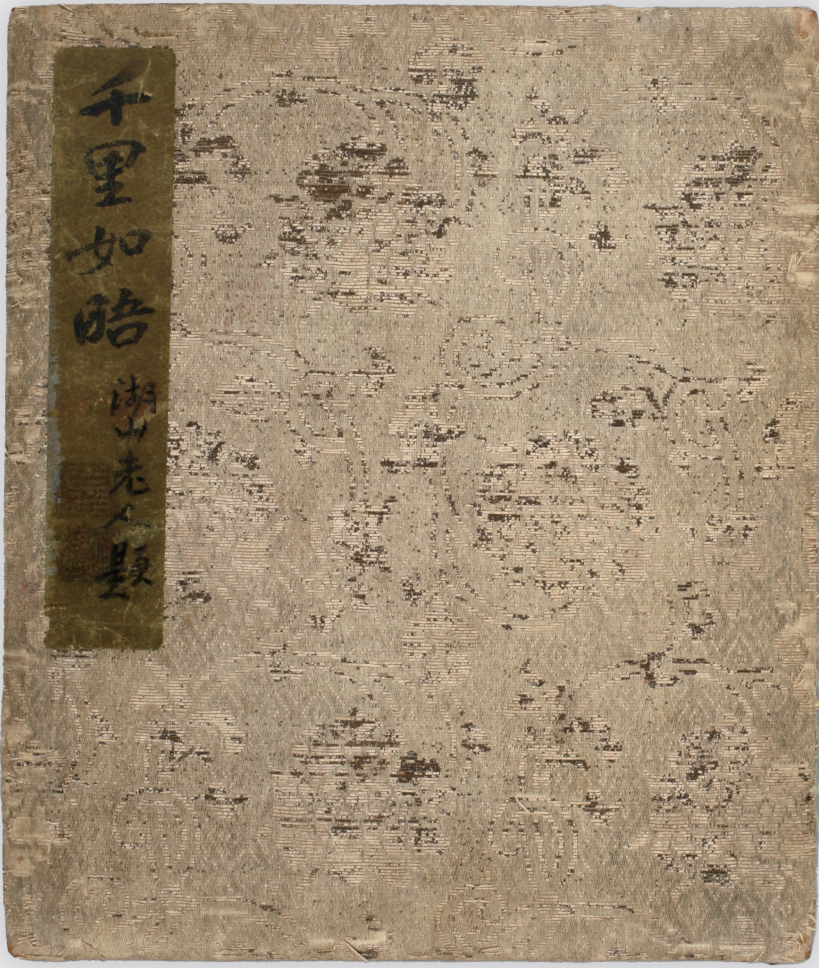 千里如晤
湖山老人題